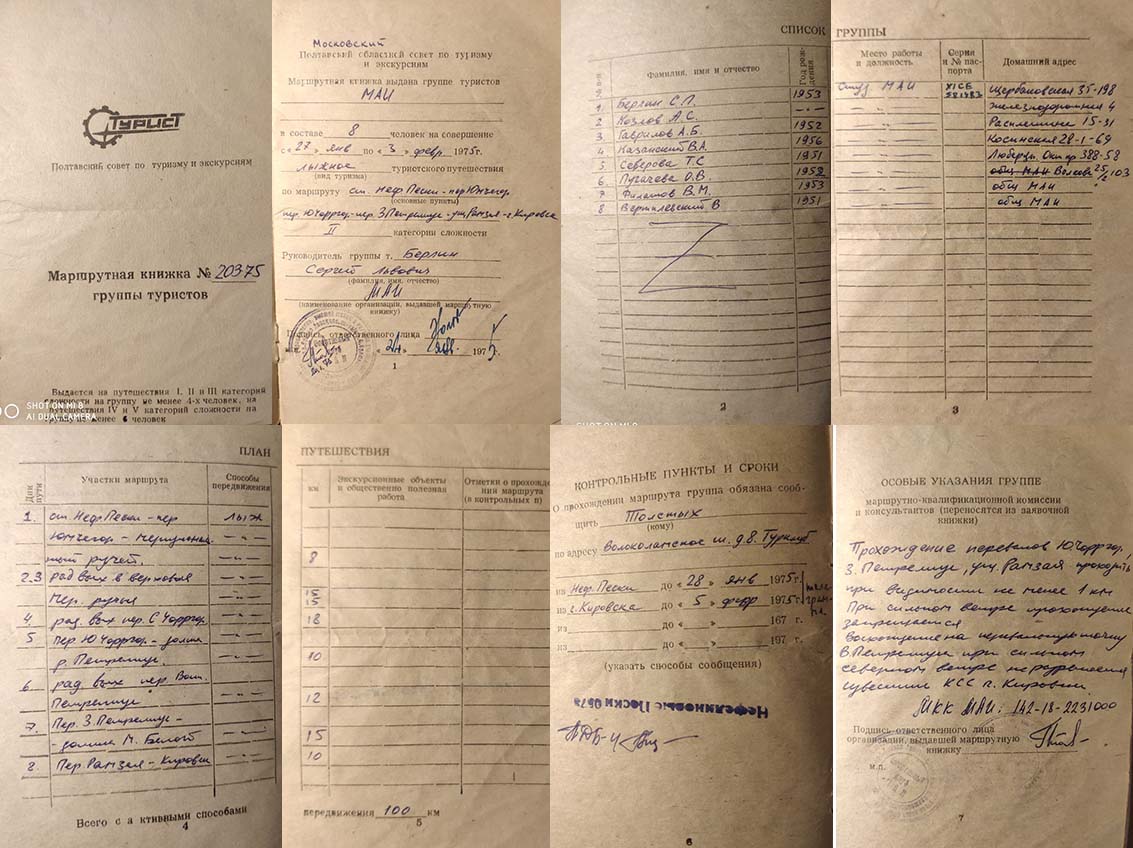 ТУРИСТ
Полтавский совет по туризму и экскурсиям
Маршрутная книжка № 20375
группы туристов
Выдается на путешествия I, II и III категорий
сложности на группу не менее 4-х человек, на
путешествия IV и V категорий сложности на
группу не менее 6 человек
SHOT ON MI 8
AI DUAL CAMERA
Московский
Полтавский областной совет по туризму
и экскурсиям
Маршрутная книжка выдана группе туристов
МАИ
в составе 8 человек на совершение
с «27» янв по «3» февр 1975г.
лыжное туристского путешествия
(вид туризма)
по маршруту ст. Неф. Пески - пер Юмчегор.
(основные пункты)
пер. Ю Чоргор. - пер. З. Петрелиус - ущ. Рамзая - г. Кировск
II категории сложности
Руководитель группы т. Берлин
Сергей Львович
(фамилия, имя, отчество)
МАИ
(наименование организации, выдавшей маршрутную
книжку)
Подпись ответственного лица
1975г.
1
СПИСОК
Фамилия, имя и отчество
Год рождения
1 Берлин С.Л. 1953
2 Козлов А.С. -"-
3 Гаврилов А.Б. 1952
4 Казанский В.А. 1956
5 Северова Т.С 1951
6. Пугачева О.В. 1952
7 Филатов В.М. 1953
8 Вершилевский В 1951
2
SHOT ON MI 8
ГРУППЫ
Место работы
и должность
Серия
и № пас-
порта
Домашний адрес
студ МАИ XICE Щербаковская 35-198
Железнодорожная 4
15-31
Косинская 28-1-69
Люберцы Окт пр. 388-58
общ МАИ
общ МАИ
общ МАИ
3
ПЛАН
Дни
пути
Участки маршрута
Способы
передвижения
1. ст. Неф. Пески - пер лыж
Юмчегор -
ручей.
2.3 рад вых в верховья
Мер. ручья
4. рад. вых пер. С Чоргор.
5 Пер Ю Чоргор. - долина
р. Петрелиус.
6. рад вых пер. Вост.
Петрелиус
7. Пер. З. Петрелиус -
- долина М. Белой
8. Пер. Рамзая - Кировск
Всего с активными способами
4
ПУТЕШЕСТВИЯ
км
Экскурсионные объекты
и общественно полезная
работа
Отметки о прохожде-
нии маршрута
(в контрольных п)
8
15
15
18
10
12
15
10
передвижения 100 км
5
КОНТРОЛЬНЫЕ ПУНКТЫ И СРОКИ
О прохождении маршрута группа обязана сооб-
щить Толстых
(кому)
по адресу Волоколамское ш. д. 8. Турклуб
из Неф. Пески до «28» янв 1975г.
из г. Кировска до «5» февр 1975г.
из до « » 197 г.
из до « » 197 г.
(указать способы сообщения)
Нефелиновые Пески
6
ОСОБЫЕ УКАЗАНИЯ ГРУППЕ
маршрутно-квалификационной комиссии
и консультантов (переносятся из заявочной
книжки)
Прохождение перевалов Ю. Чоргор,
З. Петрелиус, ущ. Рамзая проходить
при видимости не менее 1 км
При сильном ветре прохождение
запрещается
Восхождение на перевальную точку
В. Петрелиус при сильном
северном ветре не разрешается
КСС г. Кировска.
МКК МАИ: 142-18-2231000
Подпись ответственного лица
организации, выдавшей маршрутную
книжку
м.п.
7